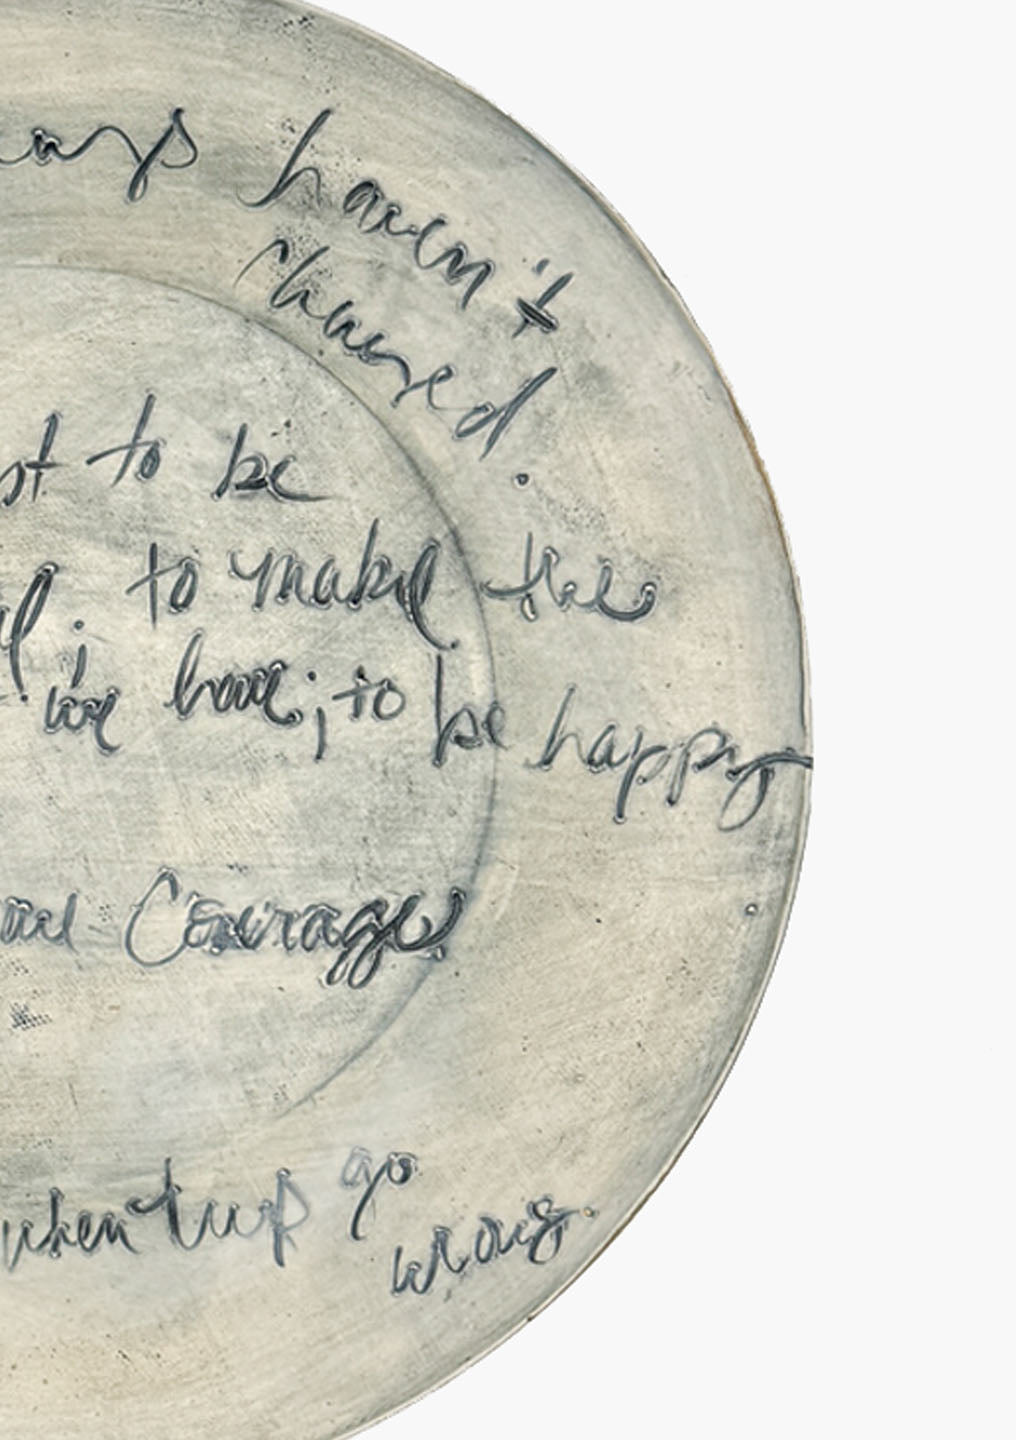 haven't
changed.
to be
to make the
we have; to be happy
Courage
when things go
wrong.